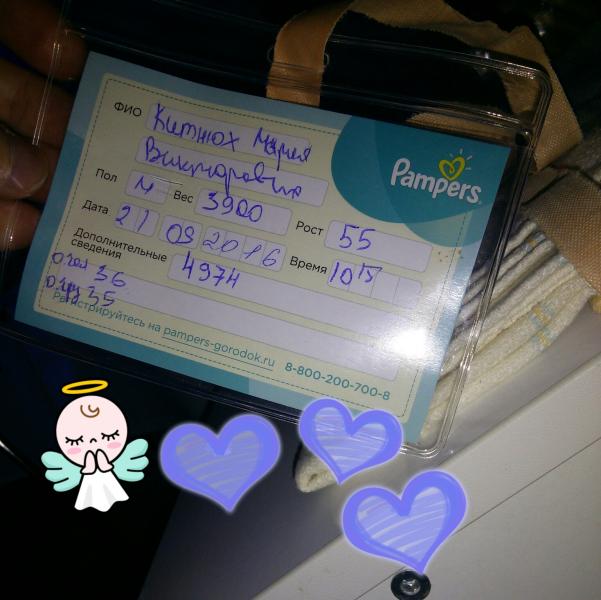 Pampers
ФИО Китнюх Мария
Викторовна
Пол м Вес 3900 Рост 55
Дата 21 09 2016 Время 10 15
Дополнительные
сведения 4974
о гол 36
о гр 35
Регистрируйтесь на pampers-gorodok.ru 8-800-200-700-8